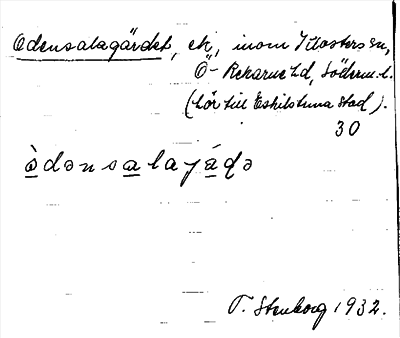 Odensalagärdet, ek, inom Klosters sn,
Ö-Rekarne hd, Söderm. l.
(hör till Eskilstuna stad).
30
ò̲dənsa̲layá̲ɖə
T. Stenborg 1932.